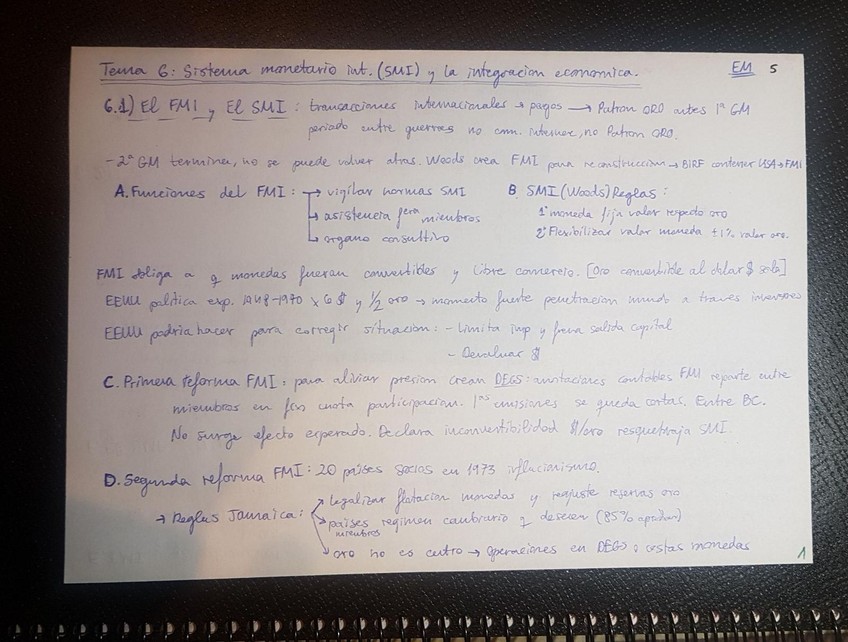 Tema 6: Sistema monetario int. (SMI) y la integracion economica.
EM 5
6.1) El FMI y El SMI: transacciones internacionales → pagos → Patron ORO antes 1ª GM
periodo entre guerras no conv. interner, no Patron ORO.
- 2ª GM termina, no se puede volver atras. Woods crea FMI para reconstruccion → BIRF contener USA → FMI
A. Funciones del FMI: → vigilar normas SMI
→ asistencia fcra miembros
→ organo consultivo
B. SMI (Woods) Reglas:
1º moneda fija valor respecto oro
2º Flexibilizar valor moneda ±1% valor oro.
FMI obliga a q monedas fueran convertibles y libre comercio. [Oro convertible al dolar $ solo]
EEUU politica exp. 1948-1970 x 6 $ y 1/2 oro → momento fuerte penetracion mundo a traves inversores
EEUU podria hacer para corregir situacion: - Limita imp y frena salida capital
- Devaluar $
C. Primera reforma FMI: para aliviar presion crean DEGS: anotaciones contables FMI reparte entre
miembros en fcn cuota participacion. 1as emisiones se queda cortas. Entre BC.
No surge efecto esperado. Declara inconvertibilidad $/oro resquebraja SMI
D. Segunda reforma FMI: 20 países socios en 1973 inflacionismo.
→ Reglas Jamaica: legalizar flotacion monedas y reajuste reservas oro
países miembros regimen cambiario q deseen (85% aprueban)
oro no es cutro → operaciones en DEGS o cestas monedas
1